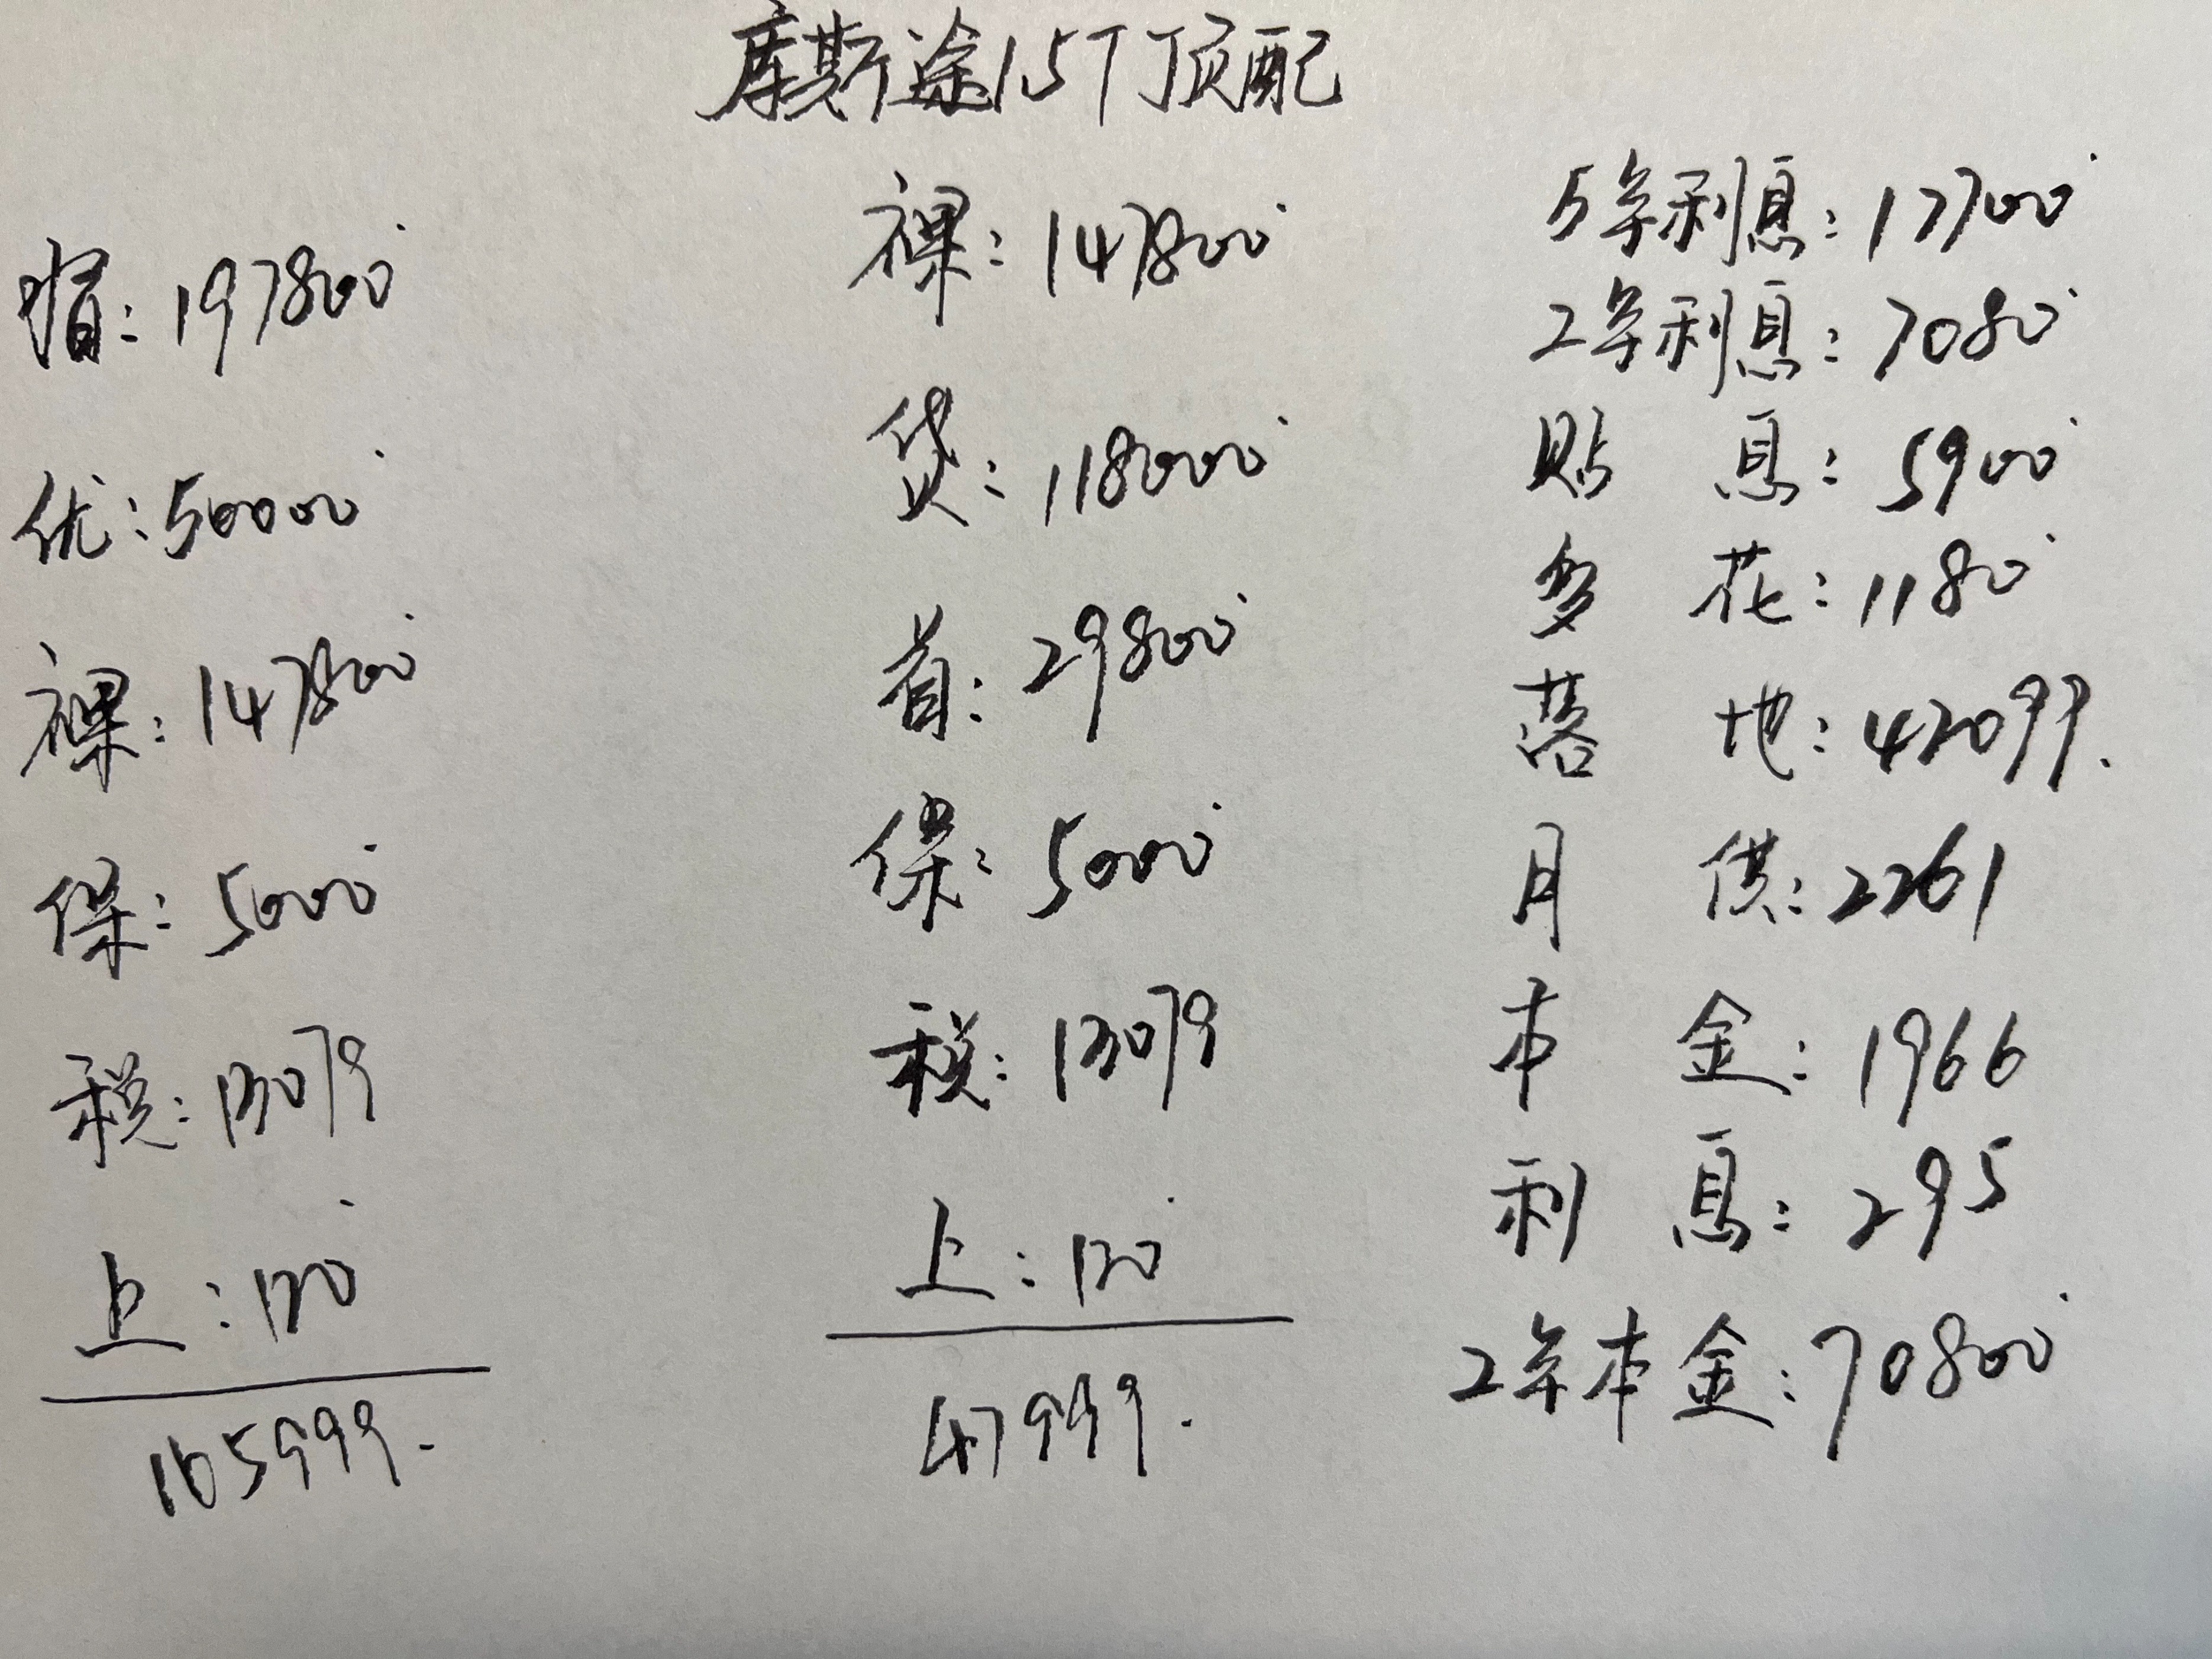 库斯途15T顶配
指:197800
优:50000
裸:147800
保:5000
税:13079
上:120
165999.
裸:147800
贷:118000
首:29800
保:5000
税:13079
上:120
47999.
5年利息:17700
2年利息:7080
贴息:5900
多花:1180
落地:42099.
月供:2261
本金:1966
利息:295
2年本金:70800